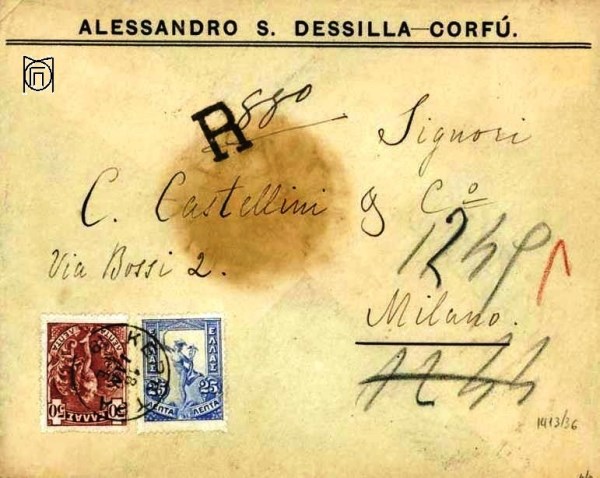 ALESSANDRO S. DESSILLA—CORFÚ.
R
880
Signori
C. Castellini & Cº
Via Bossi 2.
1249
Milano.
1244
ΕΛΛΑΣ
25 25
ΛΕΠΤΑ ΛΕΠΤΑ
ΕΛΛΑΣ
50 50
ΛΕΠΤΑ ΛΕΠΤΑ
1413/36